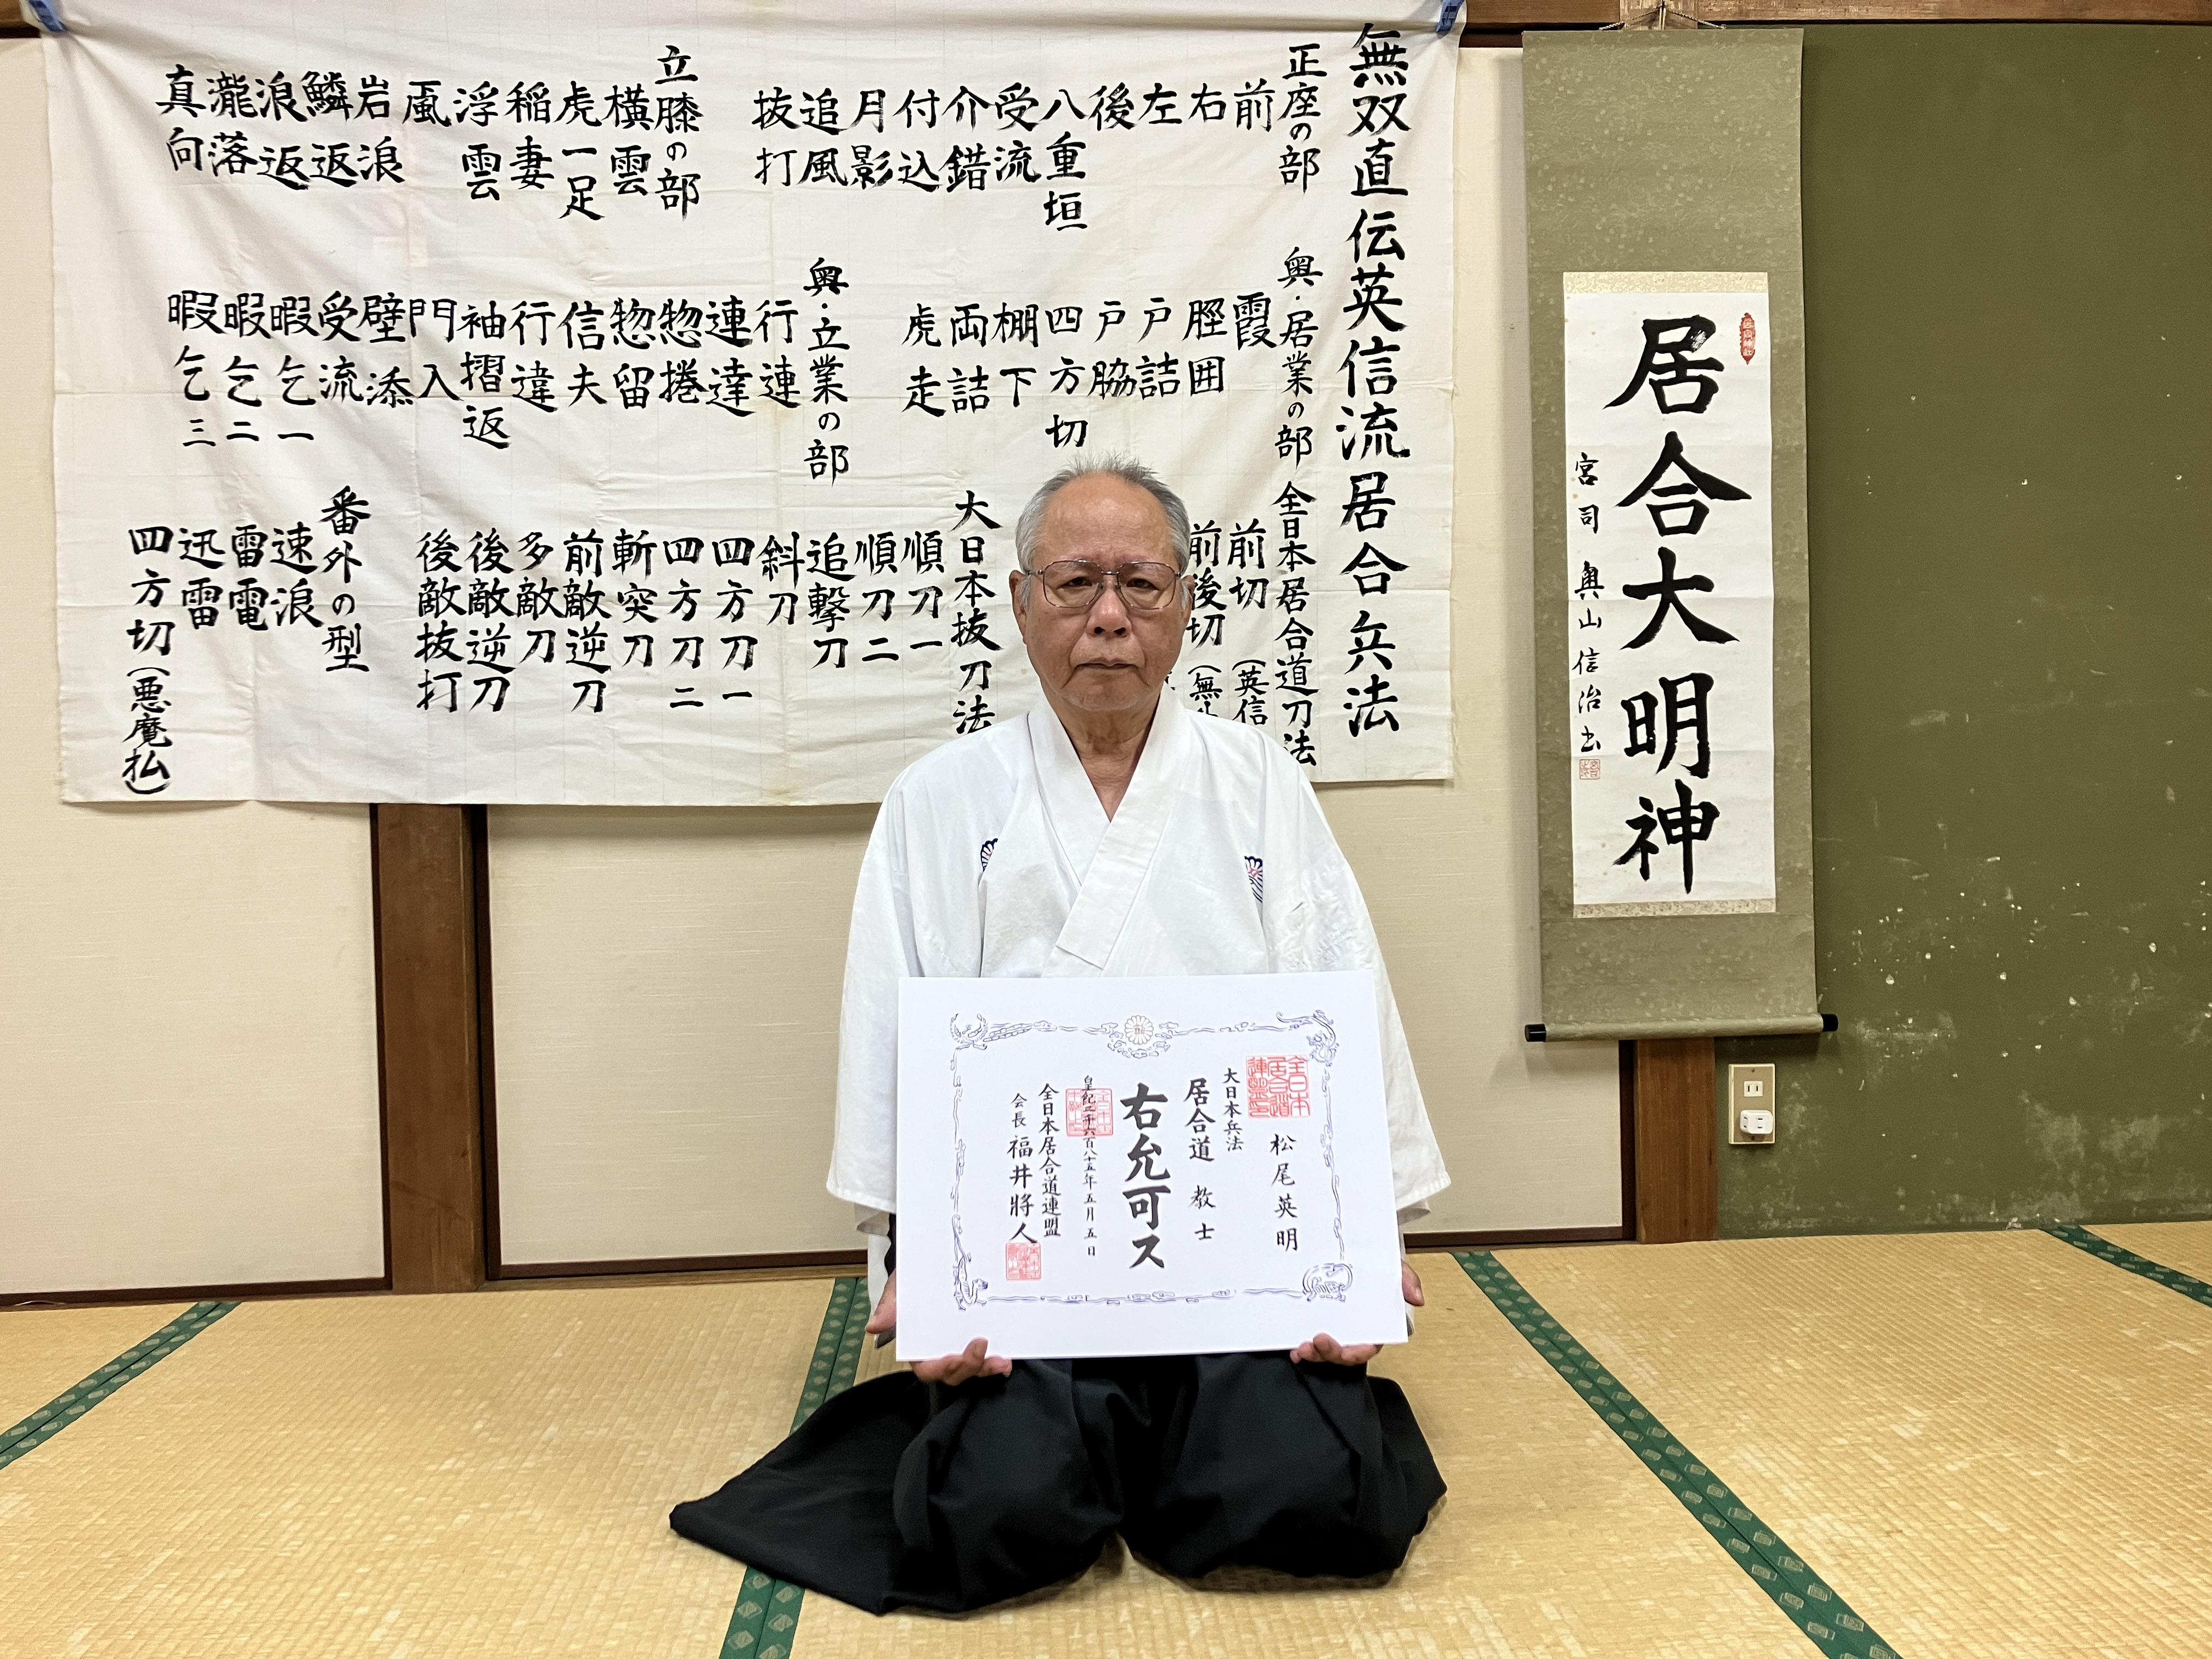 無双直伝英信流居合兵法
正座の部
前
右
左
後
八重垣
受流
介錯
付込
月影
追風
抜打
立膝の部
横雲
虎一足
稲妻
浮雲
颪
岩浪
鱗返
浪返
瀧落
真向
奥・居業の部
霞
脛囲
戸詰
戸脇
四方切
棚下
両詰
虎走
奥・立業の部
行連
連達
惣捲
惣留
信夫
行違
袖摺返
門入
壁添
受流
暇乞一
暇乞二
暇乞三
全日本居合道刀法
前切(英信
前後切(無
大日本抜刀法
順刀一
順刀二
追撃刀
斜刀
四方刀一
四方刀二
斬突刀
前敵逆刀
多敵刀
後敵逆刀
後敵抜打
番外の型
速浪
雷電
迅雷
四方切(悪魔払)
居合大明神
宮司 奥山信治書
松尾英明
大日本兵法
居合道 教士
右允可ス
皇紀二千六百八十五年五月五日
全日本居合道連盟
会長 福井將人